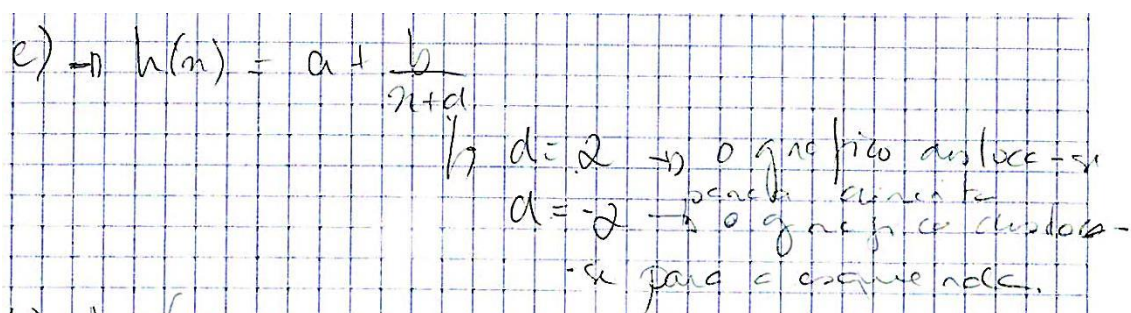 c) → h(x) = a + b/(x+d)
↳ d = 2 → o gráfico desloca-se
para a direita
d = -2 → o gráfico desloca-
-se para a esquerda.